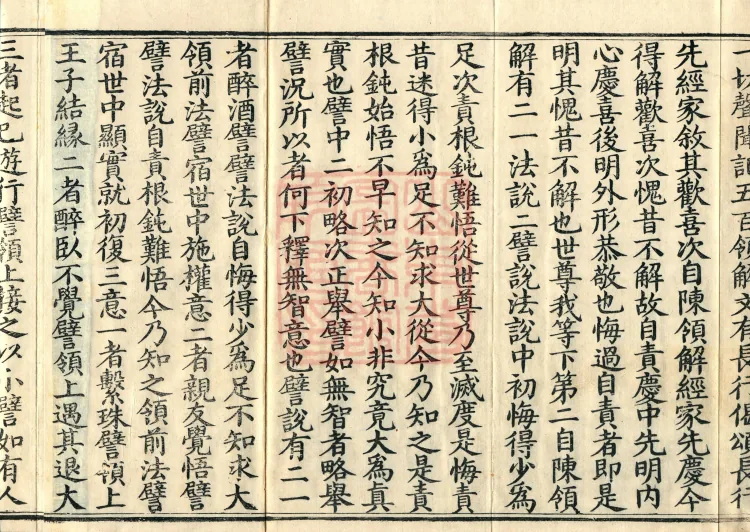 一切聲聞記五百領解文有長行偈頌長行
先經家敘其歡喜次自陳領解經家先慶今
得解歡喜次愧昔不解故自責慶中先明内
心慶喜後明外形恭敬也悔過自責者即是
明其愧昔不解也世尊我等下第二自陳領
解有二一法說二譬說法說中初悔得少為
足次責根鈍難悟從世尊乃至滅度是悔責
昔迷得小為足不知求大從今乃知之是責
根鈍始悟不早知之今知小非究竟大為真
實也譬中二初略次正舉譬如無智者略舉
譬況所以者何下釋無智意也譬說有二一
者醉酒譬譬法說自悔得少為足不知求大
領前法譬宿世中施權意二者親友覺悟譬
譬法說自責根鈍難悟今乃知之領前法譬
宿世中顯實就初復三意一者繫珠譬領上
王子結緣二者醉臥不覺譬領上遇其退大
三者起已遊行譬領上接之以小譬如有人